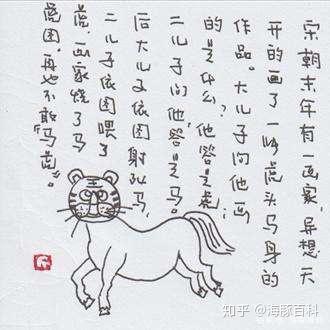 宋朝末年有一画家,异想天
开的画了一幅虎头马身的
作品。大儿子问他画
的是什么?他答是虎;
二儿子问他答是马。
后大儿子依图射死马,
二儿子依图喂了
虎,画家烧了马
虎图。再也不敢“马虎”。
知乎 @海豚百科